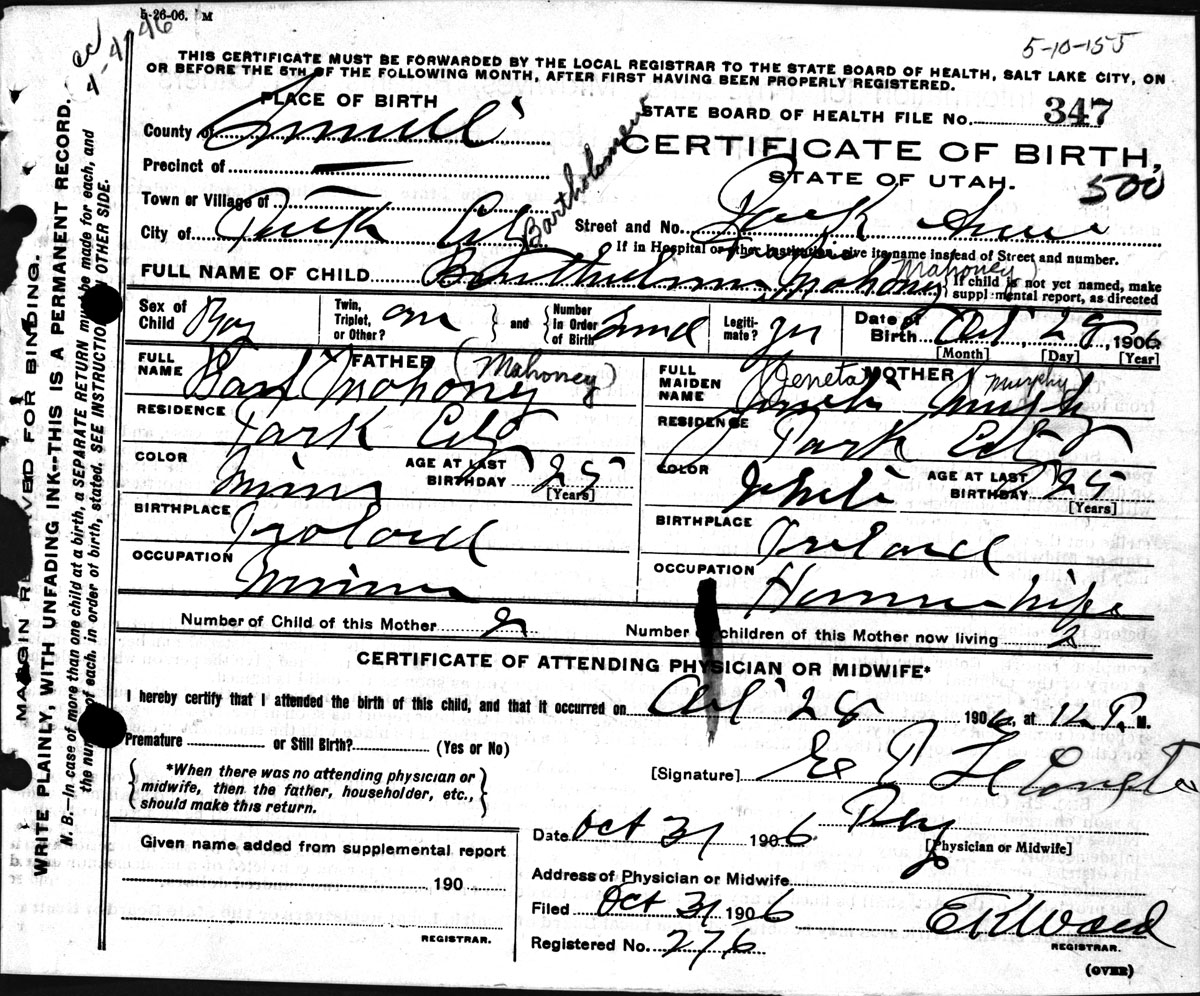 5-26-06. M
4-4-46
5-10-155
THIS CERTIFICATE MUST BE FORWARDED BY THE LOCAL REGISTRAR TO THE STATE BOARD OF HEALTH, SALT LAKE CITY, ON
OR BEFORE THE 5TH OF THE FOLLOWING MONTH, AFTER FIRST HAVING BEEN PROPERLY REGISTERED.
PLACE OF BIRTH
STATE BOARD OF HEALTH FILE No. 347
County of
CERTIFICATE OF BIRTH,
Precinct of —
STATE OF UTAH.
500
Town or Village of —
Bartholomew
City of Park City
Street and No. Park
If in Hospital or other Institution, give its name instead of Street and number.
FULL NAME OF CHILD Mahony (Mahoney)
If child is not yet named, make
supplemental report, as directed
Sex of Child Boy
Twin, Triplet, or Other?
and Number in Order of Birth
Legiti-mate?
Date of Birth Oct 28, 1906
[Month] [Day] [Year]
FULL NAME FATHER Bart Mahony (Mahoney)
FULL MAIDEN NAME MOTHER (Jeneta Murphy)
RESIDENCE Park City
RESIDENCE Park City
COLOR
AGE AT LAST BIRTHDAY 25 [Years]
COLOR White
AGE AT LAST BIRTHDAY 25 [Years]
BIRTHPLACE Ireland
BIRTHPLACE Ireland
OCCUPATION Miner
OCCUPATION House wife
Number of Child of this Mother 2
Number of children of this Mother now living 2
CERTIFICATE OF ATTENDING PHYSICIAN OR MIDWIFE*
I hereby certify that I attended the birth of this child, and that it occurred on Oct 28 1906, at 12 P. M.
Premature or Still Birth? (Yes or No)
*When there was no attending physician or
midwife, then the father, householder, etc.,
should make this return.
[Signature]
Date Oct 31 1906
[Physician or Midwife]
Given name added from supplemental report
190
REGISTRAR.
Address of Physician or Midwife
Filed Oct 31 1906
E R Ward
REGISTRAR.
Registered No. 276
(OVER)
MARGIN RESERVED FOR BINDING.
WRITE PLAINLY, WITH UNFADING INK--THIS IS A PERMANENT RECORD.
N. B.—In case of more than one child at a birth, a SEPARATE RETURN must be made for each, and
the number of each, in order of birth, stated. SEE INSTRUCTIONS ON OTHER SIDE.